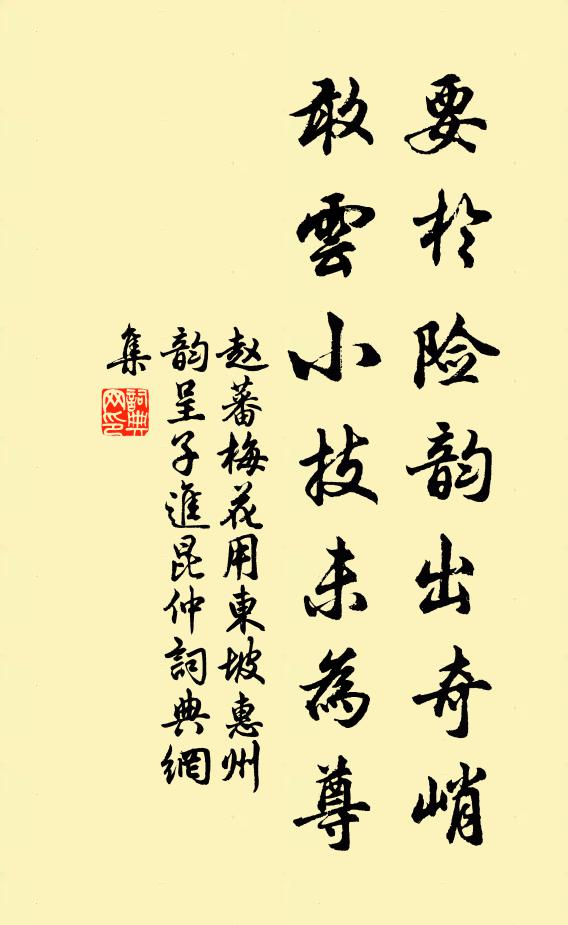 要於险韵出奇峭
敢雲小技未為尊
赵蕃梅花用東坡惠州
韵呈子進昆仲詞典網
集
詞典
网印